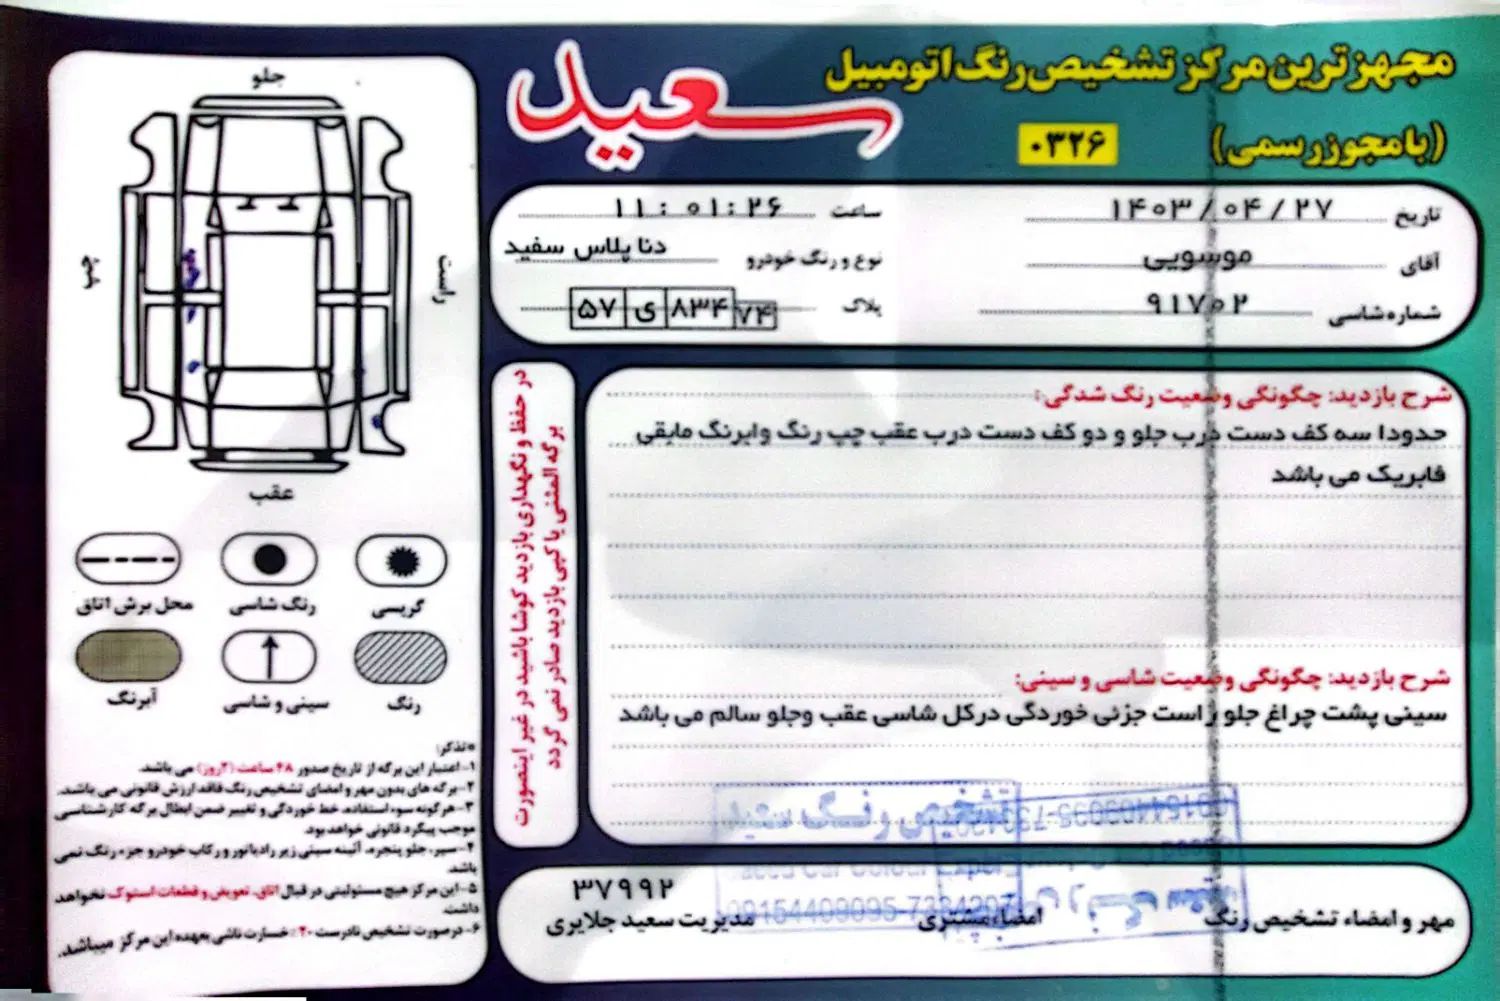 مجهزترین مرکز تشخیص رنگ اتومبیل
سعید
(بامجوز رسمی)
۰۳۲۶
تاریخ ۱۴۰۳/۰۴/۲۷
ساعت ۱۱:۰۱:۲۶
آقای موسویی
نوع و رنگ خودرو دنا پلاس سفید
شماره شاسی ۹۱۷۰۲
پلاک ۵۷ ی ۸۳۴ ۷۴
شرح بازدید: چگونگی وضعیت رنگ شدگی:
حدودا سه کف دست درب جلو و دو کف دست درب عقب چپ رنگ وابرنگ مابقی
فابریک می باشد
شرح بازدید: چگونگی وضعیت شاسی و سینی:
سینی پشت چراغ جلو راست جزئی خوردگی درکل شاسی عقب وجلو سالم می باشد
در حفظ و نگهداری بازدید کوشا باشید در غیر اینصورت
برگه المثنی یا کپی بازدید صادر نمی گردد
جلو
راست
عقب
گریسی
رنگ شاسی
محل برش اتاق
رنگ
سینی و شاسی
آبرنگ
*تذکر:
۱-اعتبار این برگه از تاریخ صدور ۴۸ ساعت (۲روز) می باشد.
۲-برگه های بدون مهر و امضای تشخیص رنگ فاقد ارزش قانونی می باشد.
۳-هرگونه سوء استفاده، خط خوردگی و تغییر ضمن ابطال برگه کارشناسی
موجب پیگرد قانونی خواهد بود.
۴-سپر، جلو پنجره، آئینه سینی زیر رادیاتور و رکاب خودرو جزء رنگ نمی
باشد.
۵-این مرکز هیچ مسئولیتی در قبال اتاق، تعویض و قطعات استوک نخواهد
داشت.
۶-درصورت تشخیص نادرست ۲۰٪ خسارت ناشی بعهده این مرکز میباشد.
تشخیص رنگ سعید
09154409095-7334207
مهر و امضاء تشخیص رنگ
امضاء مشتری
۳۷۹۹۲
مدیریت سعید جلایری